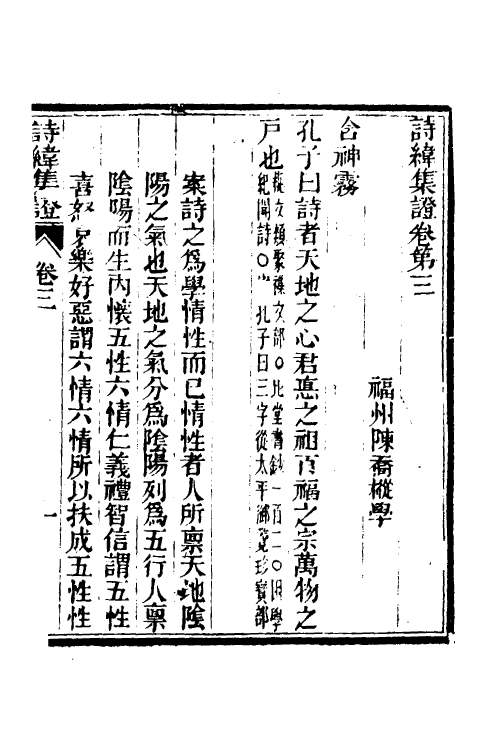 詩緯集證卷第三
福州陳喬樅學
含神霧
孔子曰詩者天地之心君悳之祖百福之宗萬物之
戶也藝文類聚雜文部〇北堂書鈔一百二〇初學
紀聞詩〇 孔子曰三字從太平御覽珍寶部
案詩之爲學情性而已情性者人所禀天地陰
陽之氣也天地之氣分爲陰陽列爲五行人禀
陰陽而生內懷五性六情仁義禮智信謂五性
喜怒哀樂好惡謂六情六情所以扶成五性性
詩緯集證 卷三 一